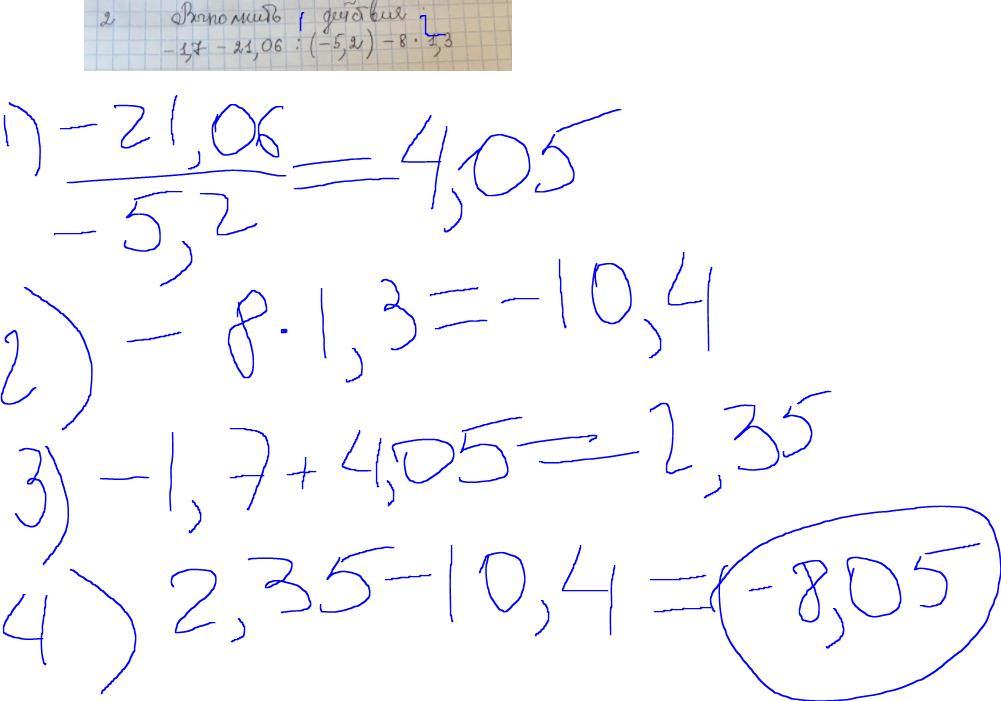 2 Выполнить 1 действия : 2
-1,7 - 21,06 : (-5,2) - 8 · 1,3
1) -21,06
= 4,05
-5,2
2) - 8 · 1,3 = -10,4
3) -1,7 + 4,05 = 2,35
4) 2,35 - 10,4 = -8,05